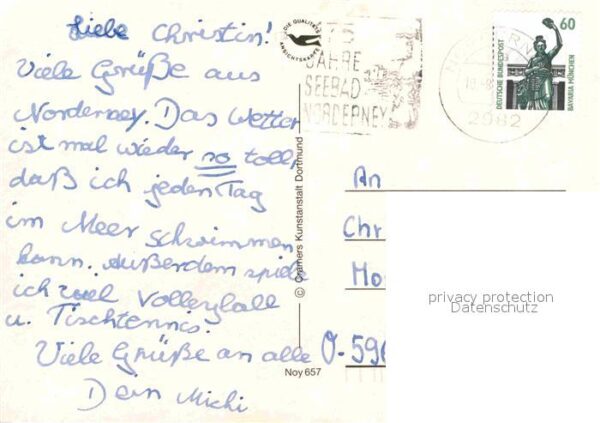 Liebe Christin!
Viele Grüße aus
Norderney. Das Wetter
ist mal wieder so toll,
daß ich jeden Tag
im Meer schwimmen
kann. Außerdem spiele
ich viel Volleyball
u. Tischtennis.
Viele Grüße an alle
Dein Michi
DIE QUALITÄTS
ANSICHTSKARTE
JAHRE
SEEBAD
NORDERNEY
2982
60
DEUTSCHE BUNDESPOST
BAVARIA MÜNCHEN
© Cramers Kunstanstalt Dortmund
Noy 657
An
Chr
Mo
O-596
privacy protection
Datenschutz